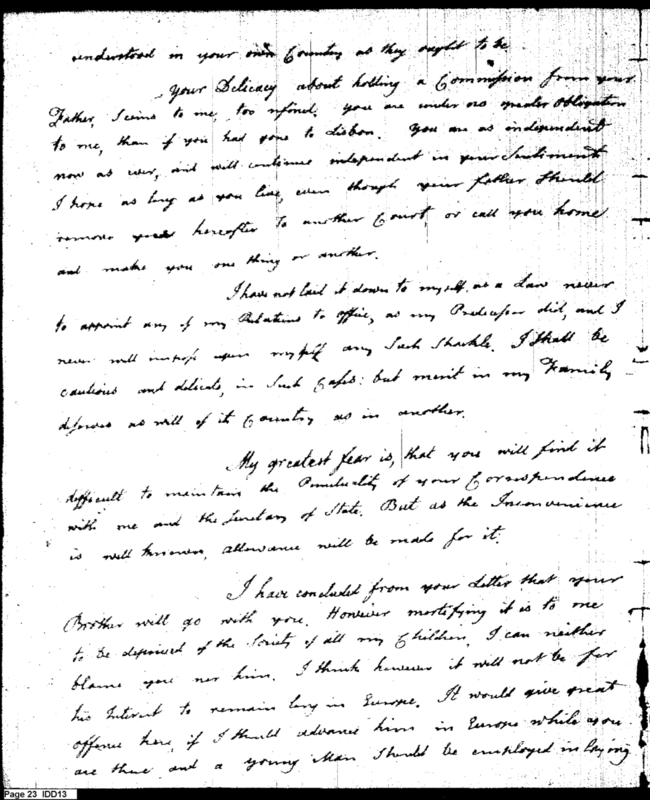 understood in your own Country as they ought to be.
Your Delicacy about holding a Commission from your
Father, Seems to me, too refined. you are under no greater obligation
to me, than if you had gone to Lisbon. You are as independent
now as ever, and will continue independent in your Sentiments
I hope as long as you live, even though your father Should
remove you hereafter to another Court, or call you home
and make you one thing or another.
I have not laid it down to myself, as a Law never
to appoint any of my Relations to office, as my Predecessor did, and I
never will impose upon myself any Such Shackle. I Shall be
cautious and delicate, in Such Cases: but merit in my Family
deserves as well of it Country as in another.
My greatest fear is, that you will find it
difficult to maintain the Punctuality of your Correspondence
with me and the Secretary of State. But as the Inconvenience
is well known, allowance will be made for it.
I have concluded from your Letter that your
Brother will go with you. However mortifying it is to me
to be deprived of the Society of all my Children, I can neither
blame you nor him. I think however it will not be for
his Interest to remain long in Europe. It would give great
offence here, if I Should advance him in Europe while you
are there and a young Man Should be employed in laying
Page 23 IDD13